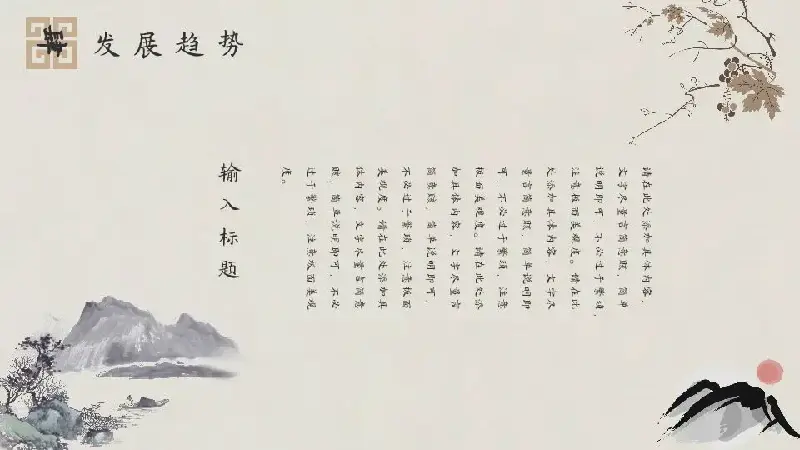 肆
发展趋势
输入标题
请在此处添加具体内容，
文字尽量言简意赅，简单
说明即可，不必过于繁琐，
注意板面美观度。请在此
处添加具体内容，文字尽
量言简意赅，简单说明即
可，不必过于繁琐，注意
板面美观度。请在此处添
加具体内容，文字尽量言
简意赅，简单说明即可，
不必过于繁琐，注意板面
美观度。请在此处添加具
体内容，文字尽量言简意
赅，简单说明即可，不必
过于繁琐，注意板面美观
度。